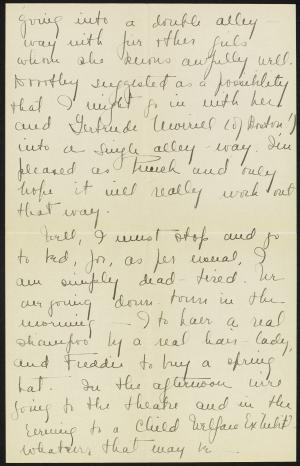 going into a double alley
way with five other girls
whom she knows awfully well.
Dorothy suggested as a possibility
that I might go in with her
and Gertrude Morrill (of Boston!)
into a single alley-way. I'm
pleased as Punch and only
hope it will really work out
that way.
Well, I must stop and go
to bed, for, as per usual, I
am simply dead-tired. We
are going down town in the
morning – I to have a real
shampoo by a real hair-lady,
and Freddie to buy a spring
hat. In the afternoon we're
going to the theatre and in the
evening to a Child Welfare Exhibit
whatever that may be –